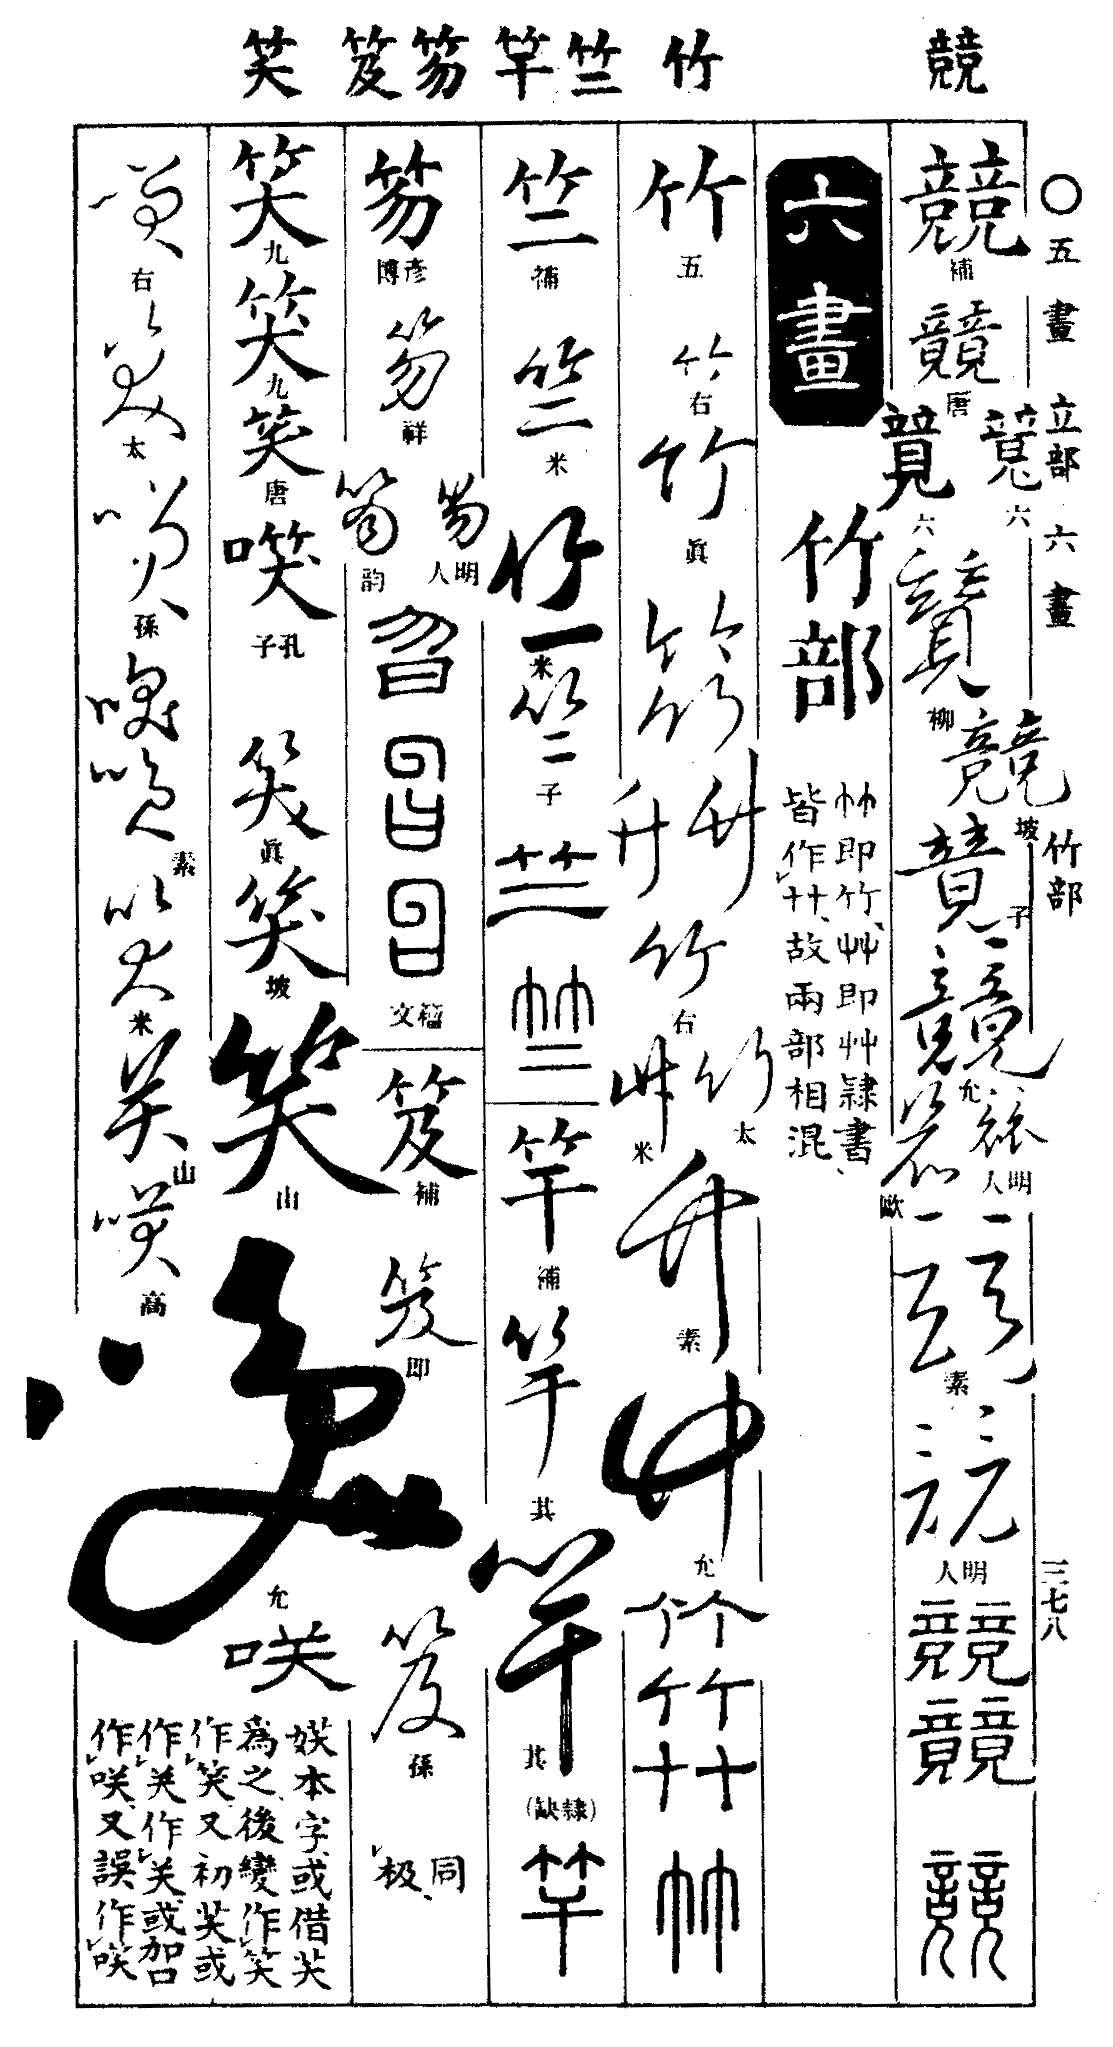 競 竹 竺 竿 笏 笈 笑
〇五畫 立部 六畫 竹部 三七八
競 補
競 唐
競 六
競 六
競 柳
競 坡
競 子
競 允
競 明人
競 歐
競 素
競 明人
競
競
競
六畫
竹部
𥫗即竹、艸即艸隸書
皆作艹、故兩部相混
竹 五
竹 右
竹 眞
竹
竹
竹
竹
竹 右
竹 太
竹 米
竹 素
竹 允
竹
竹
竹
竹
竺 補
竺 米
竺 米
竺 子
竺
竺
竿 補
竿 其
竿 其
(隸缺)
竿
笏 彦博
笏 祥
笏 明人
笏 韵
笏
笏
笏 籀文
笈 補
笈 即
笈 孫
同极、
笑 九
笑 九
笑 唐
噗 孔子
笑 眞
笑 坡
笑 山
笑 允
咲
笑 右
笑 太
笑 孫
笑
笑 素
笑 米
笑 山
笑 高
娱本字、或借芺
爲之、後變作笑
作笶、又初芺或
作关作关、或加口
作咲、又誤作咲